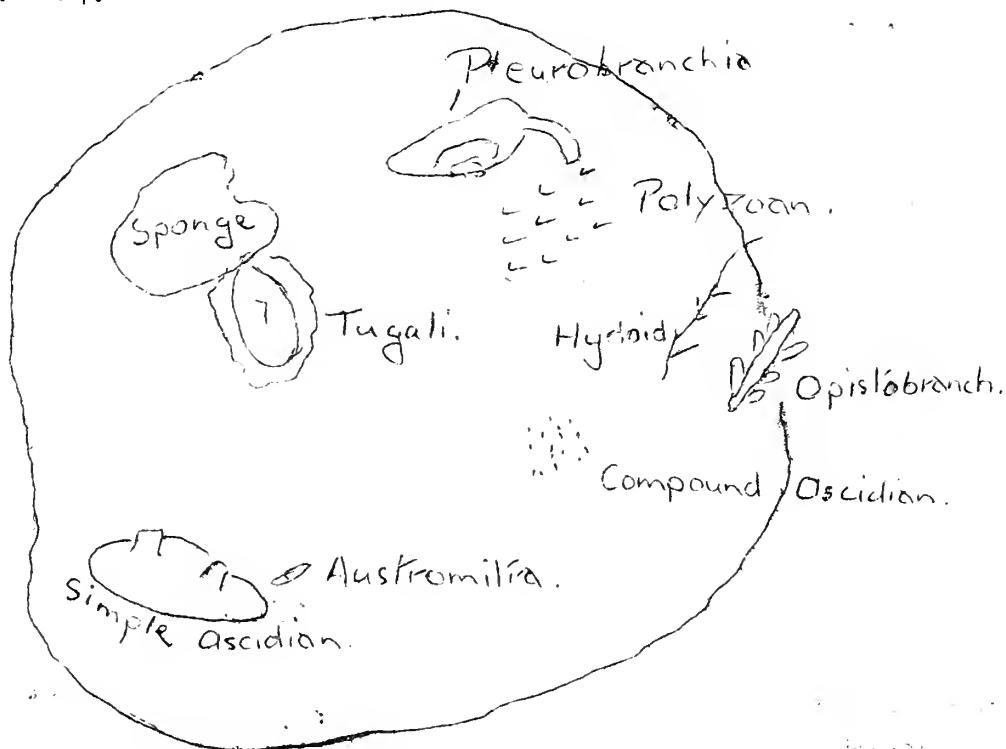 Pleurobranchia
Polyzoan.
Sponge
Tugali.
Hydroid
Opistobranch.
Compound Ascidian.
Austromitra.
Simple ascidian.